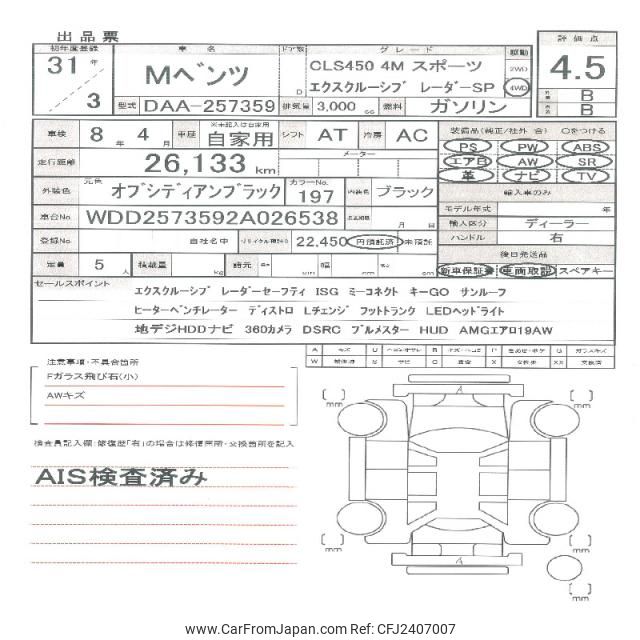 出品票
初年度登録 車名 ドア数 グレード 駆動 評価点
31年 Mベンツ D CLS450 4M スポーツ 2WD 4.5
3 エクスクルーシブ レーダーSP 4WD B
型式 DAA-257359 排気量 3,000 cc 燃料 ガソリン B
車検 8年 4月 車歴 ※未記入は自家用 自家用 シフト AT 冷房 AC 装備品(純正/社外 含) ○をつける
PS PW ABS
走行距離 26,133 km メーター エアB AW SR
革 ナビ TV
外装色 元色 オブシディアンブラック カラーNo. 197 内装色 ブラック 輸入車のみ
車台No. WDD2573592A026538 月 日 モデル年式 年
輸入区分 ディーラー
登録No. 自社名中 リサイクル預託金 22,450 円預託済 未預託 ハンドル 右
定員 5人 積載量 kg 諸元 長 cm 幅 cm 高 cm 後日発送品
新車保証書 車両取説 スペアキー
セールスポイント
エクスクルーシブ レーダーセーフティ ISG ミーコネクト キーGO サンルーフ
ヒーターベンチレーター ディストロ Lチェンジ フットトランク LEDヘッドライト
地デジHDDナビ 360カメラ DSRC ブルメスター HUD AMGエアロ19AW
注意事項・不具合箇所
Fガラス飛び石(小)
AWキズ
検査員記入欄:修復歴「有」の場合は修復箇所・交換箇所を記入
AIS検査済み
mm mm
A
mm mm
A
mm
www.CarFromJapan.com Ref: CFJ2407007